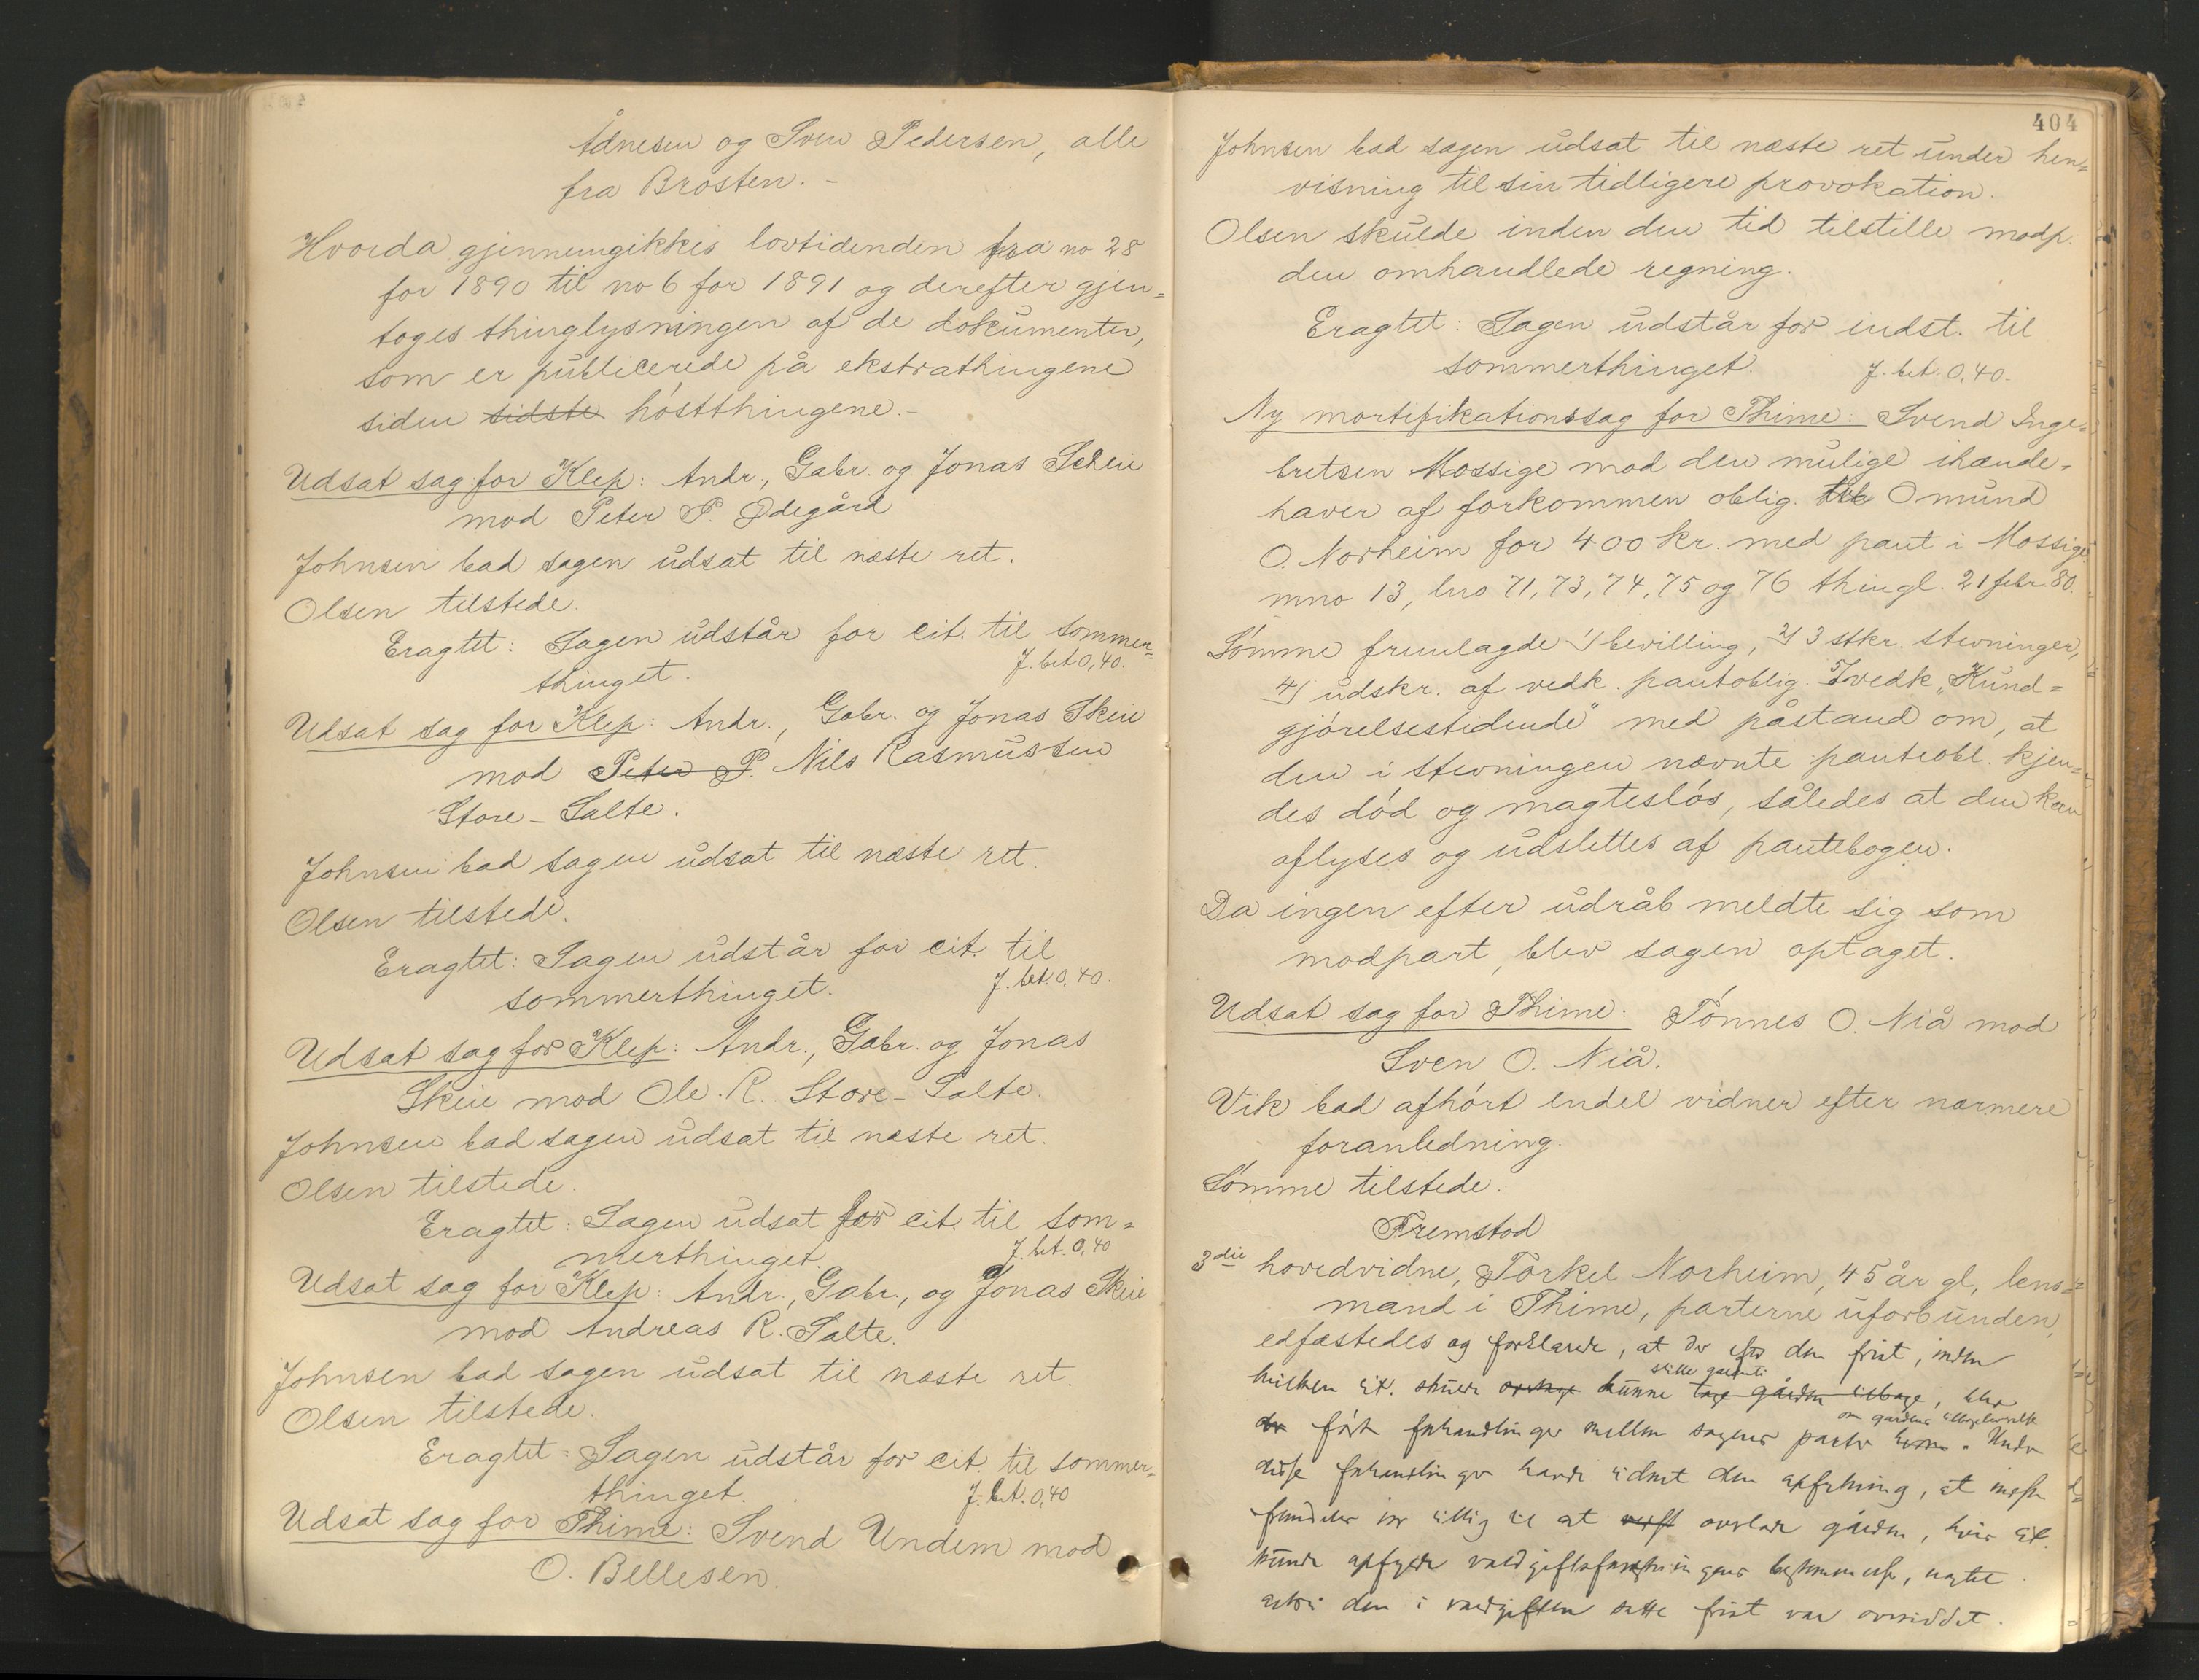 Ådnesen og Sven Pedersen, alle
fra Brosten. -
Hvorda gjennemgikkes lovtidenden fra no 28
for 1890 til no 6 for 1891 og derefter gjen=
toges thinglysningen af de dokumenter,
som er publicerede på ekstrathingene
siden sidste høstthingene. -
Udsat sag for Klep: Andr., Gabr. og Jonas Skeie
mod Peter P. Ødegård
Johnsen bad sagen udsat til næste ret.
Olsen tilstede.
Eragtet: Sagen udstår for cit. til sommer=
thinget. J. bet. 0,40.
Udsat sag for Klep: Andr., Gabr. og Jonas Skeie
mod Peter P. Nils Rasmussen
Store-Salte.
Johnsen bad sagen udsat til næste ret.
Olsen tilstede.
Eragtet: Sagen udstår for cit. til
sommerthinget. J. bet. 0,40.
Udsat sag for Klep: Andr., Gabr. og Jonas
Skeie mod Ole R. Store-Salte.
Johnsen bad sagen udsat til næste ret.
Olsen tilstede.
Eragtet: Sagen udsat for cit. til som=
merthinget. J. bet. 0,40
Udsat sag for Klep: Andr., Gabr., og Jonas Skeie
mod Andreas R. Salte.
Johnsen bad sagen udsat til næste ret.
Olsen tilstede.
Eragtet: Sagen udstår for cit. til sommer=
thinget. J. bet. 0,40
Udsat sag for Thime: Svend Undem mod
O. Bellesen.
404
Johnsen bad sagen udsat til næste ret under hen=
visning til sin tidligere provokation.
Olsen skulde inden den tid tilstille modp.
den omhandlede regning.
Eragtet: Sagen udstår for indst. til
sommerthinget. J. bet. 0,40.
Ny mortifikationssag for Thime: Svend Inge=
bretsen Mossige mod den mulige ihænde=
haver af forkommen oblig. til Omund
O. Norheim for 400 kr. med pant i Mossige
mno 13, lno 71, 73, 74, 75 og 76 thingl. 21 febr. 80.
Sømme fremlagde 1) bevilling, 2) 3 stkr. stevninger,
4) udskr. af vedk. pantoblig. 5) vedk. „Kund=
gjørelsestidende" med påstand om, at
den i stevningen nævnte panteobl. kjen=
des død og magtesløs, således at den kan
aflyses og udslettes af pantebogen.
Da ingen efter udråb meldte sig som
modpart, blev sagen optaget.
Udsat sag for Thime: Tønnes O. Niå mod
Sven O. Niå.
Vik bad afhørt endel vidner efter nærmere
foranledning.
Sømme tilstede.
Fremstod
3die hovedvidne, Torkel Norheim, 45 år gl, lens=
mand i Thime, parterne uforbunden,
edfæstedes og forklarede, at der efter den frist, inden
hvilken cit. skulde kunne stille garanti tage gården tilbage, blev
der ført forhandlinger mellem sagens parter om gårdens. Under
disse forhandlinger havde vidnet den opfatning, at
var villig til at overlade gården, hvis cit.
kunde opfylde bestemmelse, uagtet
den i voldgiften satte frist var overskridt.